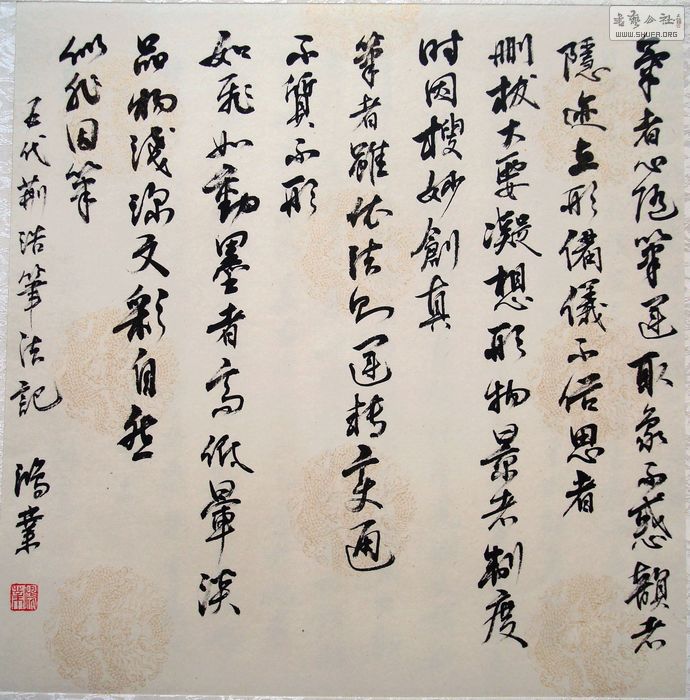 氣者心随筆運取象不惑韻者
隱迹立形備儀不俗思者
刪拔大要凝想形物景者制度
时因搜妙創真
筆者雖依法则運轉變通
不質不形
如飛如動墨者高低暈淡
品物淺深文彩自然
似非因筆
五代荆浩筆法記 鴻業
書藝公社
WWW.SHUFA.ORG